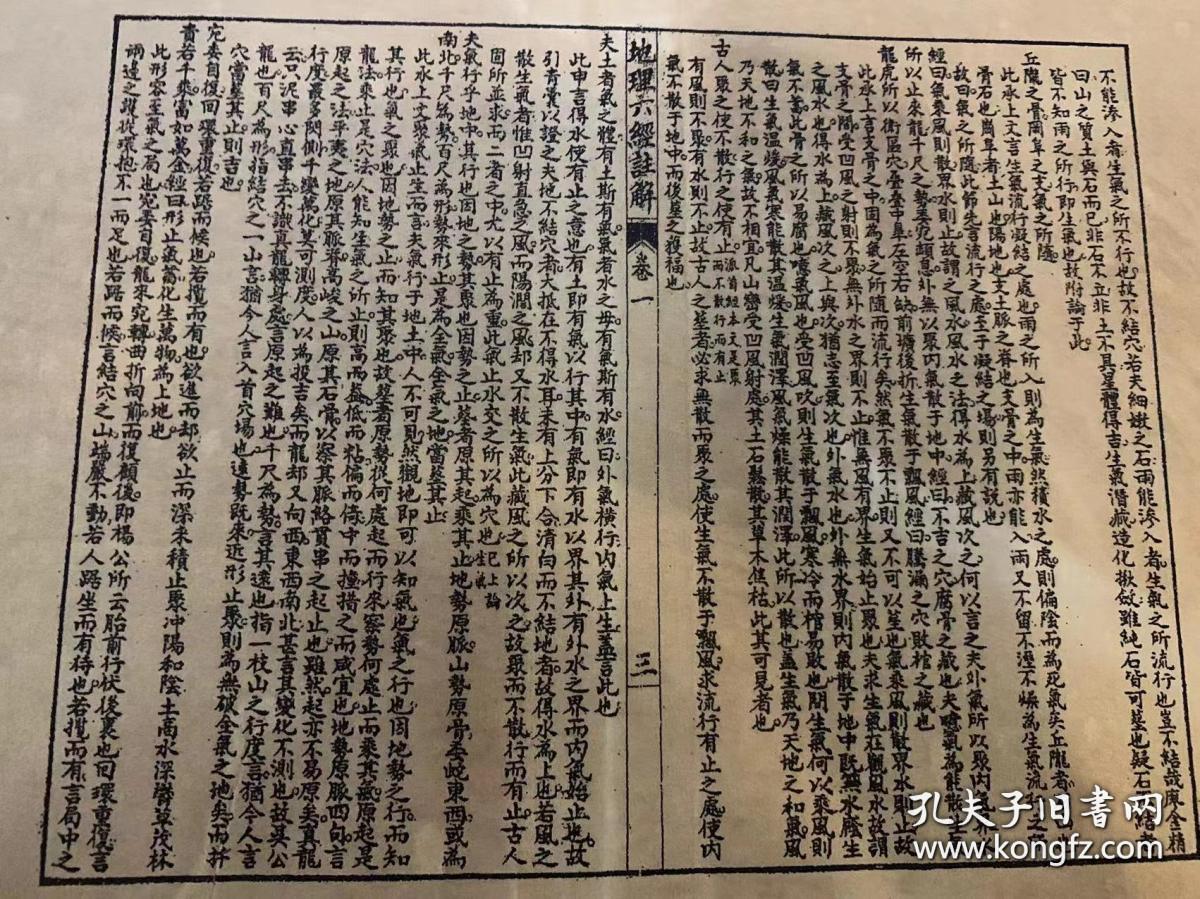 不能滲入者生氣之所不行也故不結穴若夫細嫩之石雨能滲入者生氣之所流行也豈不結哉廖金精
曰山之質土與石而已非石不立非土不具星體得吉生氣潛藏造化撒斂雖純石皆可塟也疑石不結者
皆不知雨之所行即生氣也故附論于此
丘隴之骨岡阜之支氣之所隨
此承上文言生氣流行凝結之處也雨之所入則為生氣然積水之處則偏陰而為死氣矣丘隴者
骨石也岡阜者土山也陽地也支土脈之脊也支骨之中雨亦能入雨又不留不溼不燥為生氣流行之
故曰氣之所隨此節先言流行之處至于凝結之場則另有說也
經曰氣乘風則散界水則止故謂之風水風水之法得水為上藏風次之何以言之夫外氣所以聚內氣界水
所以止來龍千尺之勢委宛頓息外無以聚內氣散于地中經曰不吉之穴腐骨之藏也夫噫氣為能散生氣
龍虎所以衛區穴疊疊中阜左空右缺前壙後折生氣散于飄風經曰騰漏之穴敗棺之藏也
此承上言支骨之中固為氣之所隨而流行矣然氣不聚不止則又不可以塟也氣乘風則散界水則止故
支骨之間受凹風之射則不聚無外水之界則不止惟無風有界生氣始止聚也夫求生氣在觀風水故謂
之風水也得水為上藏風次之上與次猶志至氣次也外氣水也外無水界則內氣散于地中既無水廕生
氣不蓄此骨之所以易腐也噫氣風也受凹風吹則生氣散于飄風寒冷而棺易敗也問生氣何以乘風則
散曰生氣溫煖風氣寒能散其溫煖生氣潤澤風氣燥能散其潤澤此所以散也蓋生氣乃天地之和氣風
乃天地不和之氣故不相宜凡山巒受凹風射處其土石鬆散其草木焦枯此其可見者也
古人聚之使不散行之使有止派首經本文是聚而不散行而有止
有風則不聚有水則不止故古人之塟者必求無散而聚之處使生氣不散于飄風求流行有止之處使內
氣不散于地中而後塟之獲福也
地理六經註解 卷一 三
夫土者氣之體有土斯有氣氣者水之母有氣斯有水經曰外氣橫行內氣止生蓋言此也
此申言得水使有止之意也有土即有氣以行其中有氣即有水以界其外有外水之界而內氣始止也故
引青囊以證之夫地不結穴者大抵在不得水耳未有上分下合清白而不結地者故得水為上也若風之
散生氣者惟凹射直急之風而陽潤之風却又不散生氣此藏風之所以次之故聚而不散行而有止古人
固所並求而二者之中尤以有止為重此氣止水交之所以為穴也已上論生氣
夫氣行乎地中其行也因地之勢其聚也因勢之止塟者原其起乘其止地勢原脈山勢原骨委蛇東西或為
南北千尺為勢百尺為形勢來形止是為全氣全氣之地當塟其止
此承上文聚氣止生而言夫氣行于地土中人不可見然觀地即可以知氣也氣之行也因地勢之行而知
其行也氣之聚也因地勢之止而知其聚也故塟者原勢從何處起而行來察勢何處止而乘其氣原起是
龍法乘止是穴法人能知生氣之所止則高而盎低而粘偏而倚中而撞措之而咸宜也地勢原脈四句言
原起之法平夷之地原其脈脊高峻之山原其石骨以察其脈絡貫串之起止也雖然起亦不易原矣真龍
行度最多閃側千變萬化莫可測度人以為投吉矣而龍却又向西東西南北甚言其變化不測也故吳公
云只泥串心直串去不識真龍轉身處言原起之難也千尺為勢言其遠也指一枝山之行度言猶今人言
龍也百尺為形指結穴之一山言猶今人言入首穴場也遠勢既來近形止聚則為無破全氣之地矣而扦
穴當塟其止則吉也
宛委自復回環重復若踞而候也若攬而有也欲進而却欲止而深來積止聚冲陽和陰土高水深鬱草茂林
貴若千乘富如萬金經曰形止氣蓄化生萬物為上地也
此形容全氣之局也宛委自復龍來宛轉西折向前而復顧後即楊公所云胎前行伏後裹也回環重復言
兩邊之護從環抱不一而足也若踞而候言結穴之山端嚴不動若人踞坐而有待也若攬而有言局中之
孔夫子旧书网
www.kongfz.com